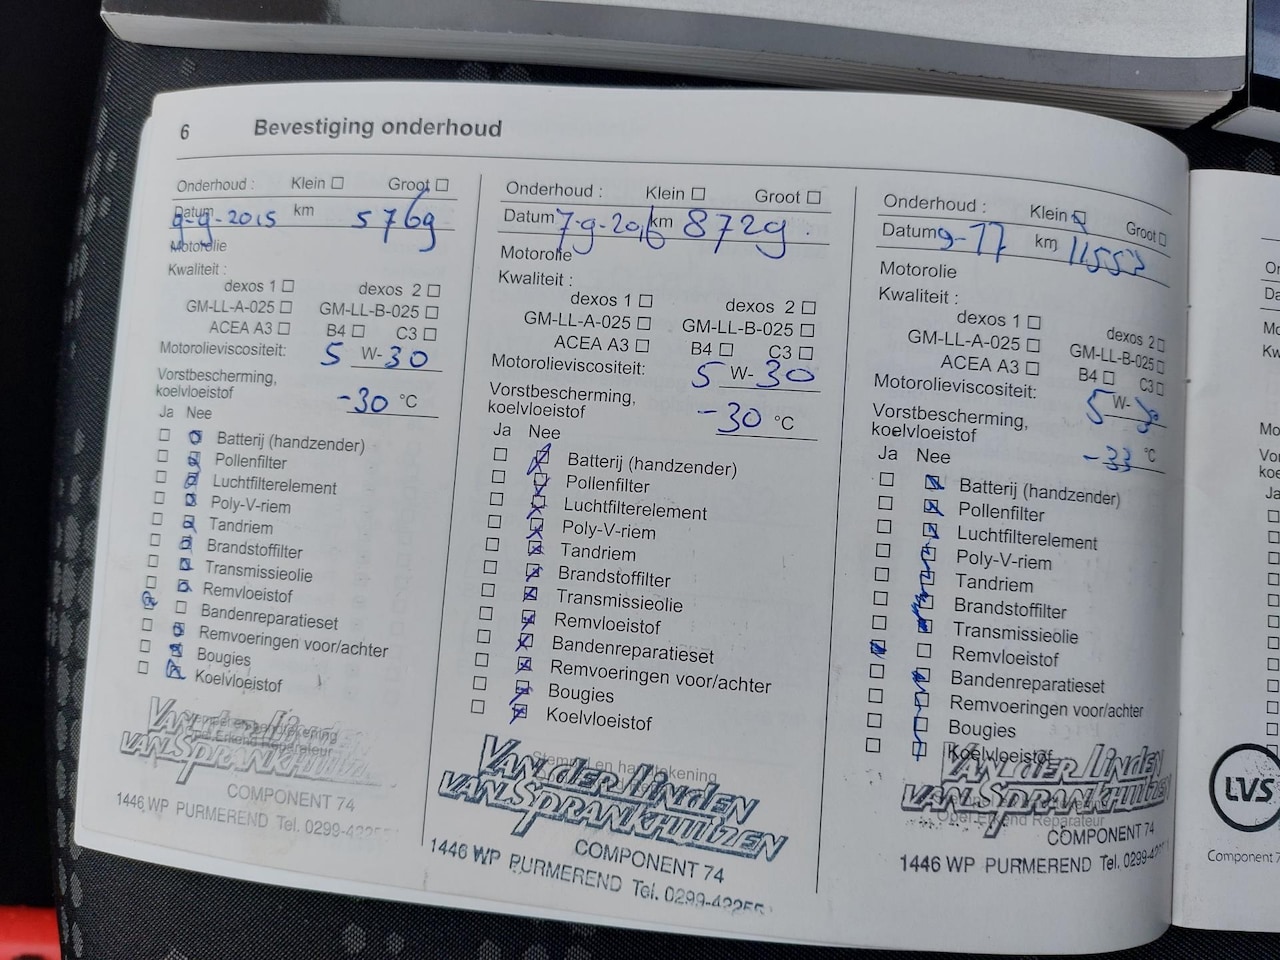 6 Bevestiging onderhoud
Onderhoud : Klein Groot
Datum 9-9-2015 km 5769
Motorolie
Kwaliteit :
dexos 1 dexos 2
GM-LL-A-025 GM-LL-B-025
ACEA A3 B4 C3
Motorolieviscositeit: 5 W-30
Vorstbescherming,
koelvloeistof -30 °C
Ja Nee
Batterij (handzender)
Pollenfilter
Luchtfilterelement
Poly-V-riem
Tandriem
Brandstoffilter
Transmissieolie
Remvloeistof
Bandenreparatieset
Remvoeringen voor/achter
Bougies
Koelvloeistof
VAN DER LINDEN
VAN SPRANKHUIZEN
COMPONENT 74
1446 WP PURMEREND Tel. 0299-42255
Onderhoud : Klein Groot
Datum 7-9-2016 km 8729
Motorolie
Kwaliteit :
dexos 1 dexos 2
GM-LL-A-025 GM-LL-B-025
ACEA A3 B4 C3
Motorolieviscositeit: 5 W-30
Vorstbescherming,
koelvloeistof -30 °C
Ja Nee
Batterij (handzender)
Pollenfilter
Luchtfilterelement
Poly-V-riem
Tandriem
Brandstoffilter
Transmissieolie
Remvloeistof
Bandenreparatieset
Remvoeringen voor/achter
Bougies
Koelvloeistof
Stempel en handtekening
VAN DER LINDEN
VAN SPRANKHUIZEN
COMPONENT 74
1446 WP PURMEREND Tel. 0299-42255
Onderhoud : Klein Groot
Datum 9-17 km 11553
Motorolie
Kwaliteit :
dexos 1 dexos 2
GM-LL-A-025 GM-LL-B-025
ACEA A3 B4 C3
Motorolieviscositeit: 5 W-30
Vorstbescherming,
koelvloeistof -33 °C
Ja Nee
Batterij (handzender)
Pollenfilter
Luchtfilterelement
Poly-V-riem
Tandriem
Brandstoffilter
Transmissieolie
Remvloeistof
Bandenreparatieset
Remvoeringen voor/achter
Bougies
Koelvloeistof
Opel Erkend Reparateur
VAN DER LINDEN
VAN SPRANKHUIZEN
COMPONENT 74
1446 WP PURMEREND Tel. 0299-42
Ja
LVS
Component 7